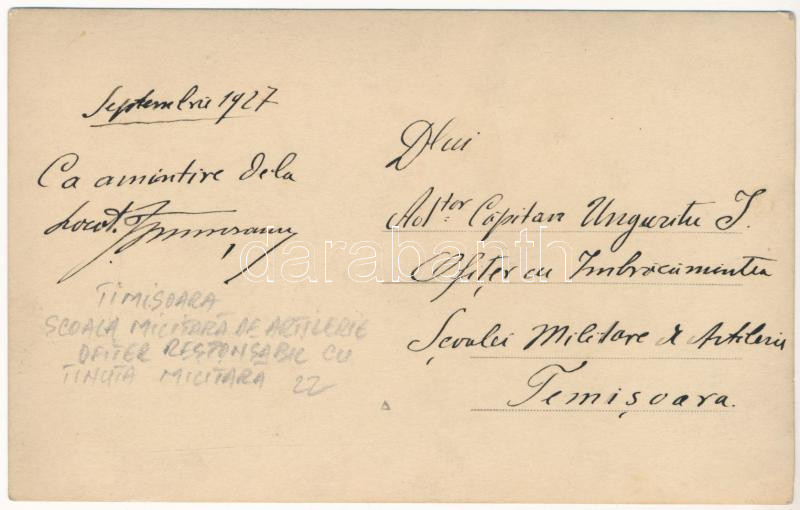 Septembrie 1927
Ca amintire dela
Locot.
Dlui
Adtor Căpitan Unguritu I.
Ofițer cu Imbrăcămintea
Școalei Militare d Artilerie
Temișoara.
TIMIȘOARA
SCOALA MILITARĂ DE ARTILERIE
OFIȚER RESPONSABIL CU
ȚINUTA MILITARA 22
darabanth